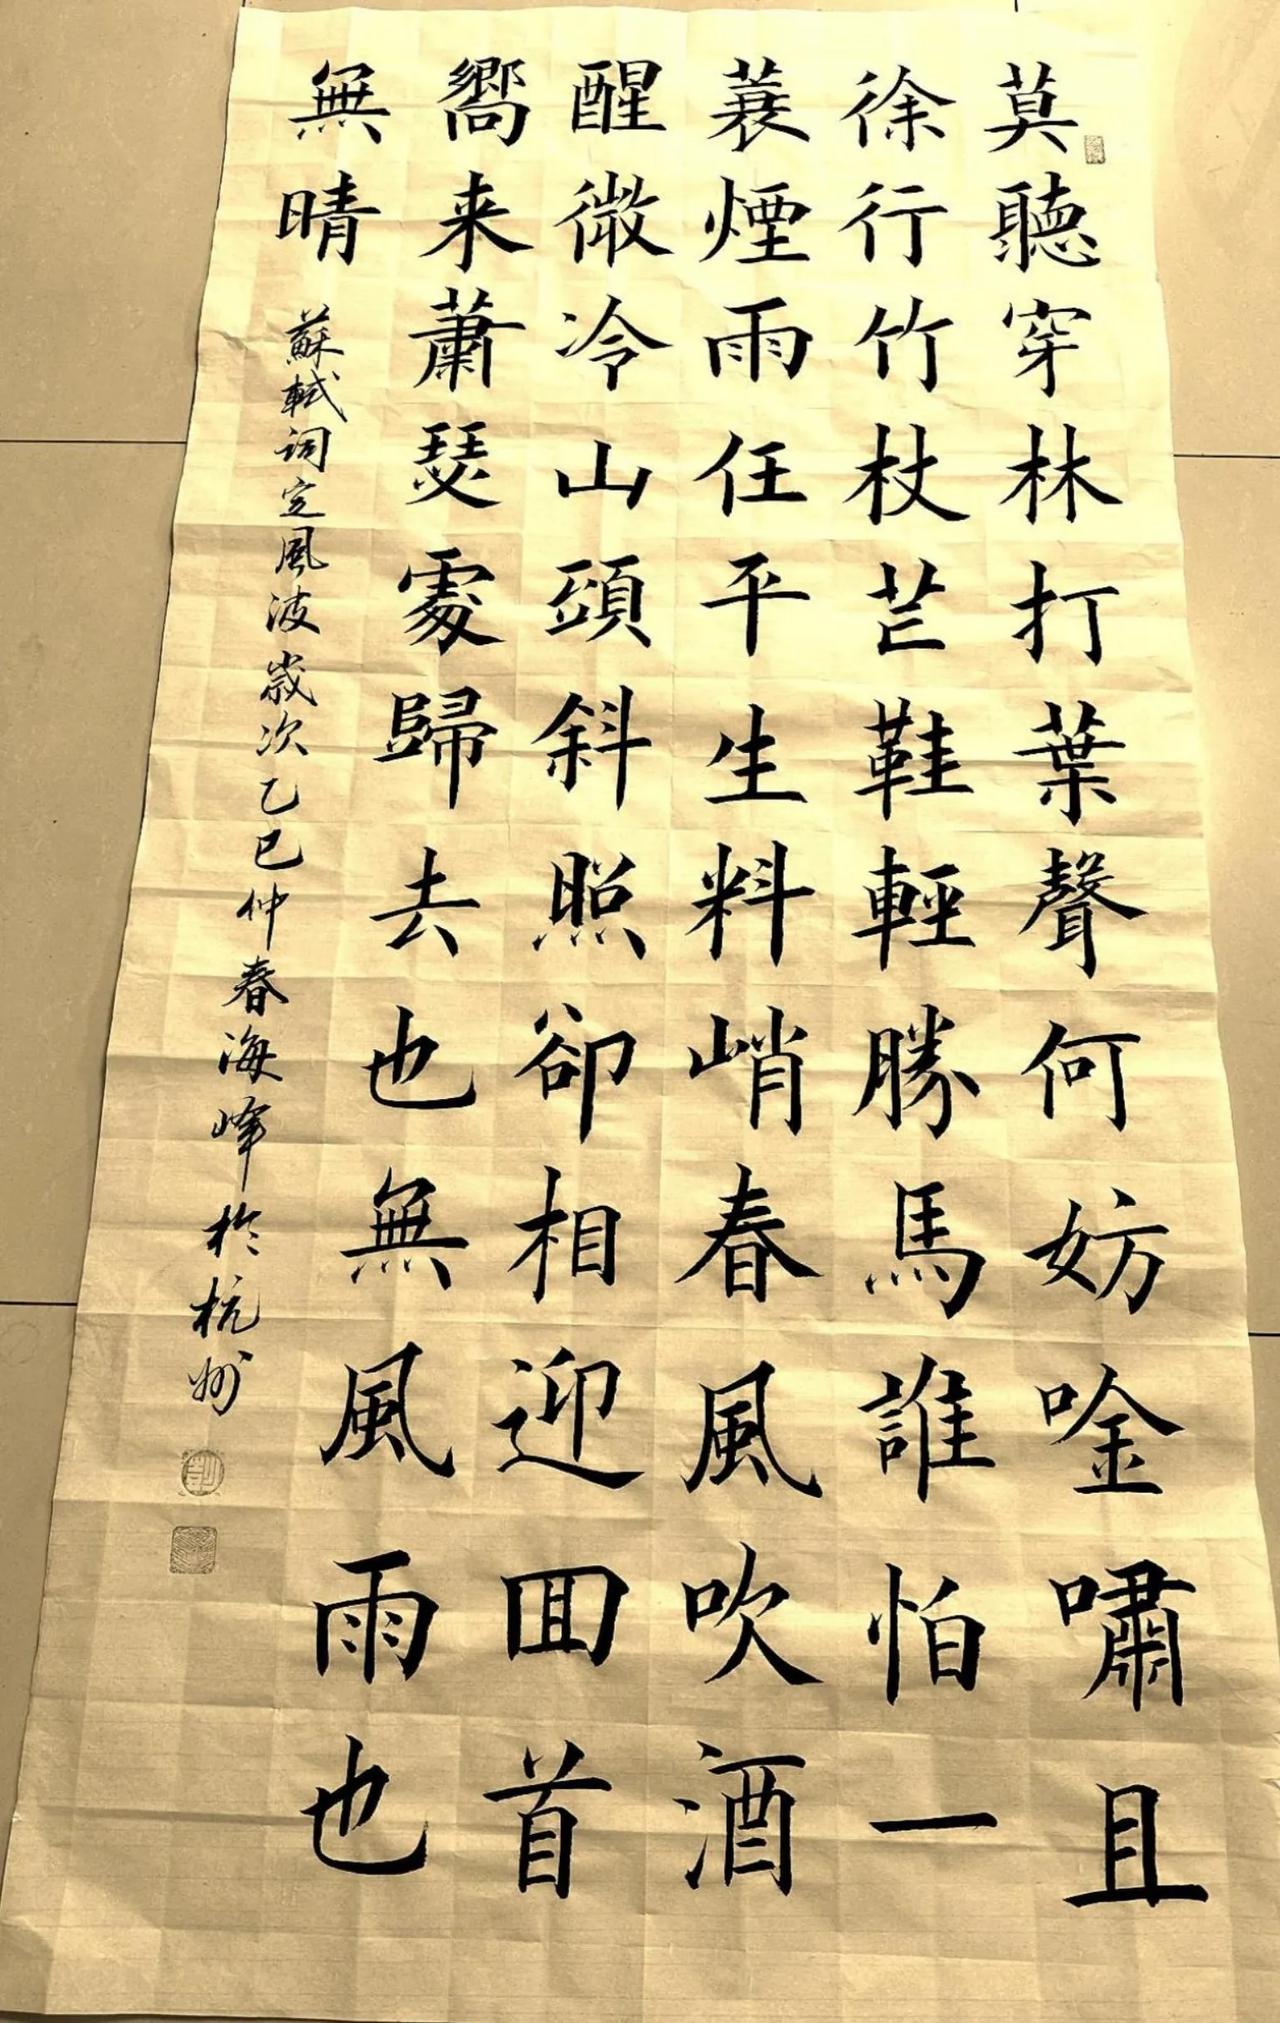 莫聽穿林打葉聲何妨唫嘯且
徐行竹杖芒鞋輕勝馬誰怕一
蓑煙雨任平生料峭春風吹酒
醒微冷山頭斜照卻相迎回首
嚮来蕭瑟處歸去也無風雨也
無晴
蘇軾詞定風波歲次乙巳仲春海峰於杭州